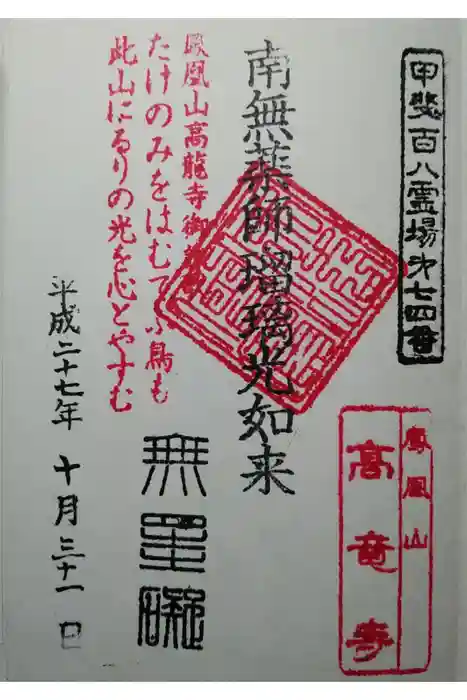 甲斐百八霊場第七四番
鳳凰山
高竜寺
南無薬師瑠璃光如来
鳳凰山高龍寺御
たけのみをはむて ふ鳥も
此山にるりの光を心とやすむ
無罣礙
平成二十七年 十月三十一日